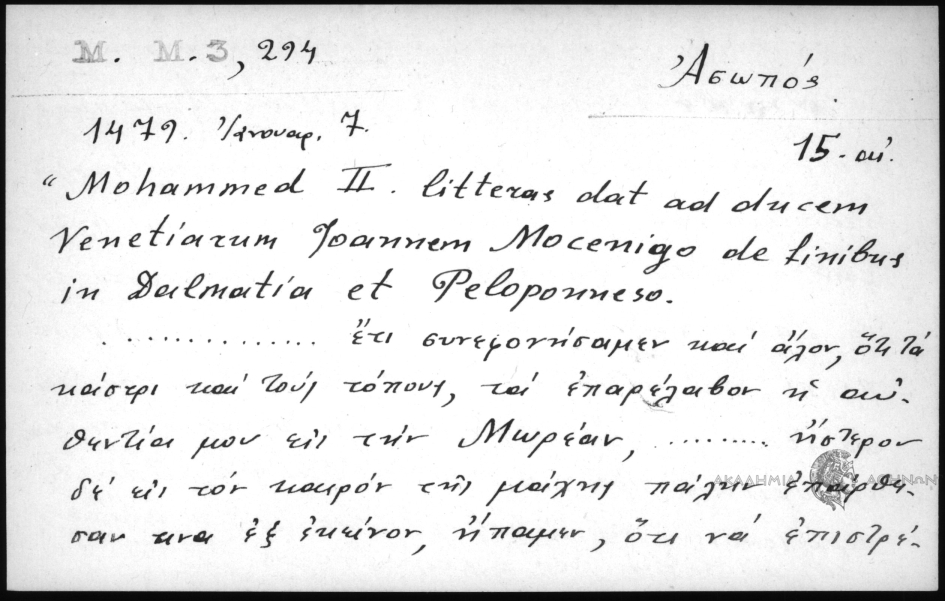 M. M.3, 294
Ἀσωπός.
1479. Ἰανουαρ. 7.
15. αἰ.
"Mohammed II. litteras dat ad ducem
Venetiarum Joannem Mocenigo de finibus
in Dalmatia et Peloponneso.
.............. ἔτι συνεφονήσαμεν καί ἄλον, ὅτι τά
κάστρι καί τούς τόπους, τά ἐπαρέλαβον ἡ αὐ-
θεντία μου εἰς τήν Μωρέαν, ......... ἥστερον
δέ εἰς τόν καιρόν τῆς μάχης πάλην ἐπάρθη-
σαν τινα ἐξ ἐκείνον, ἤπαμεν, ὅτι νά ἐπιστρέ-
ΑΚΑΔΗΜΙΑ ΑΘΗΝΩΝ